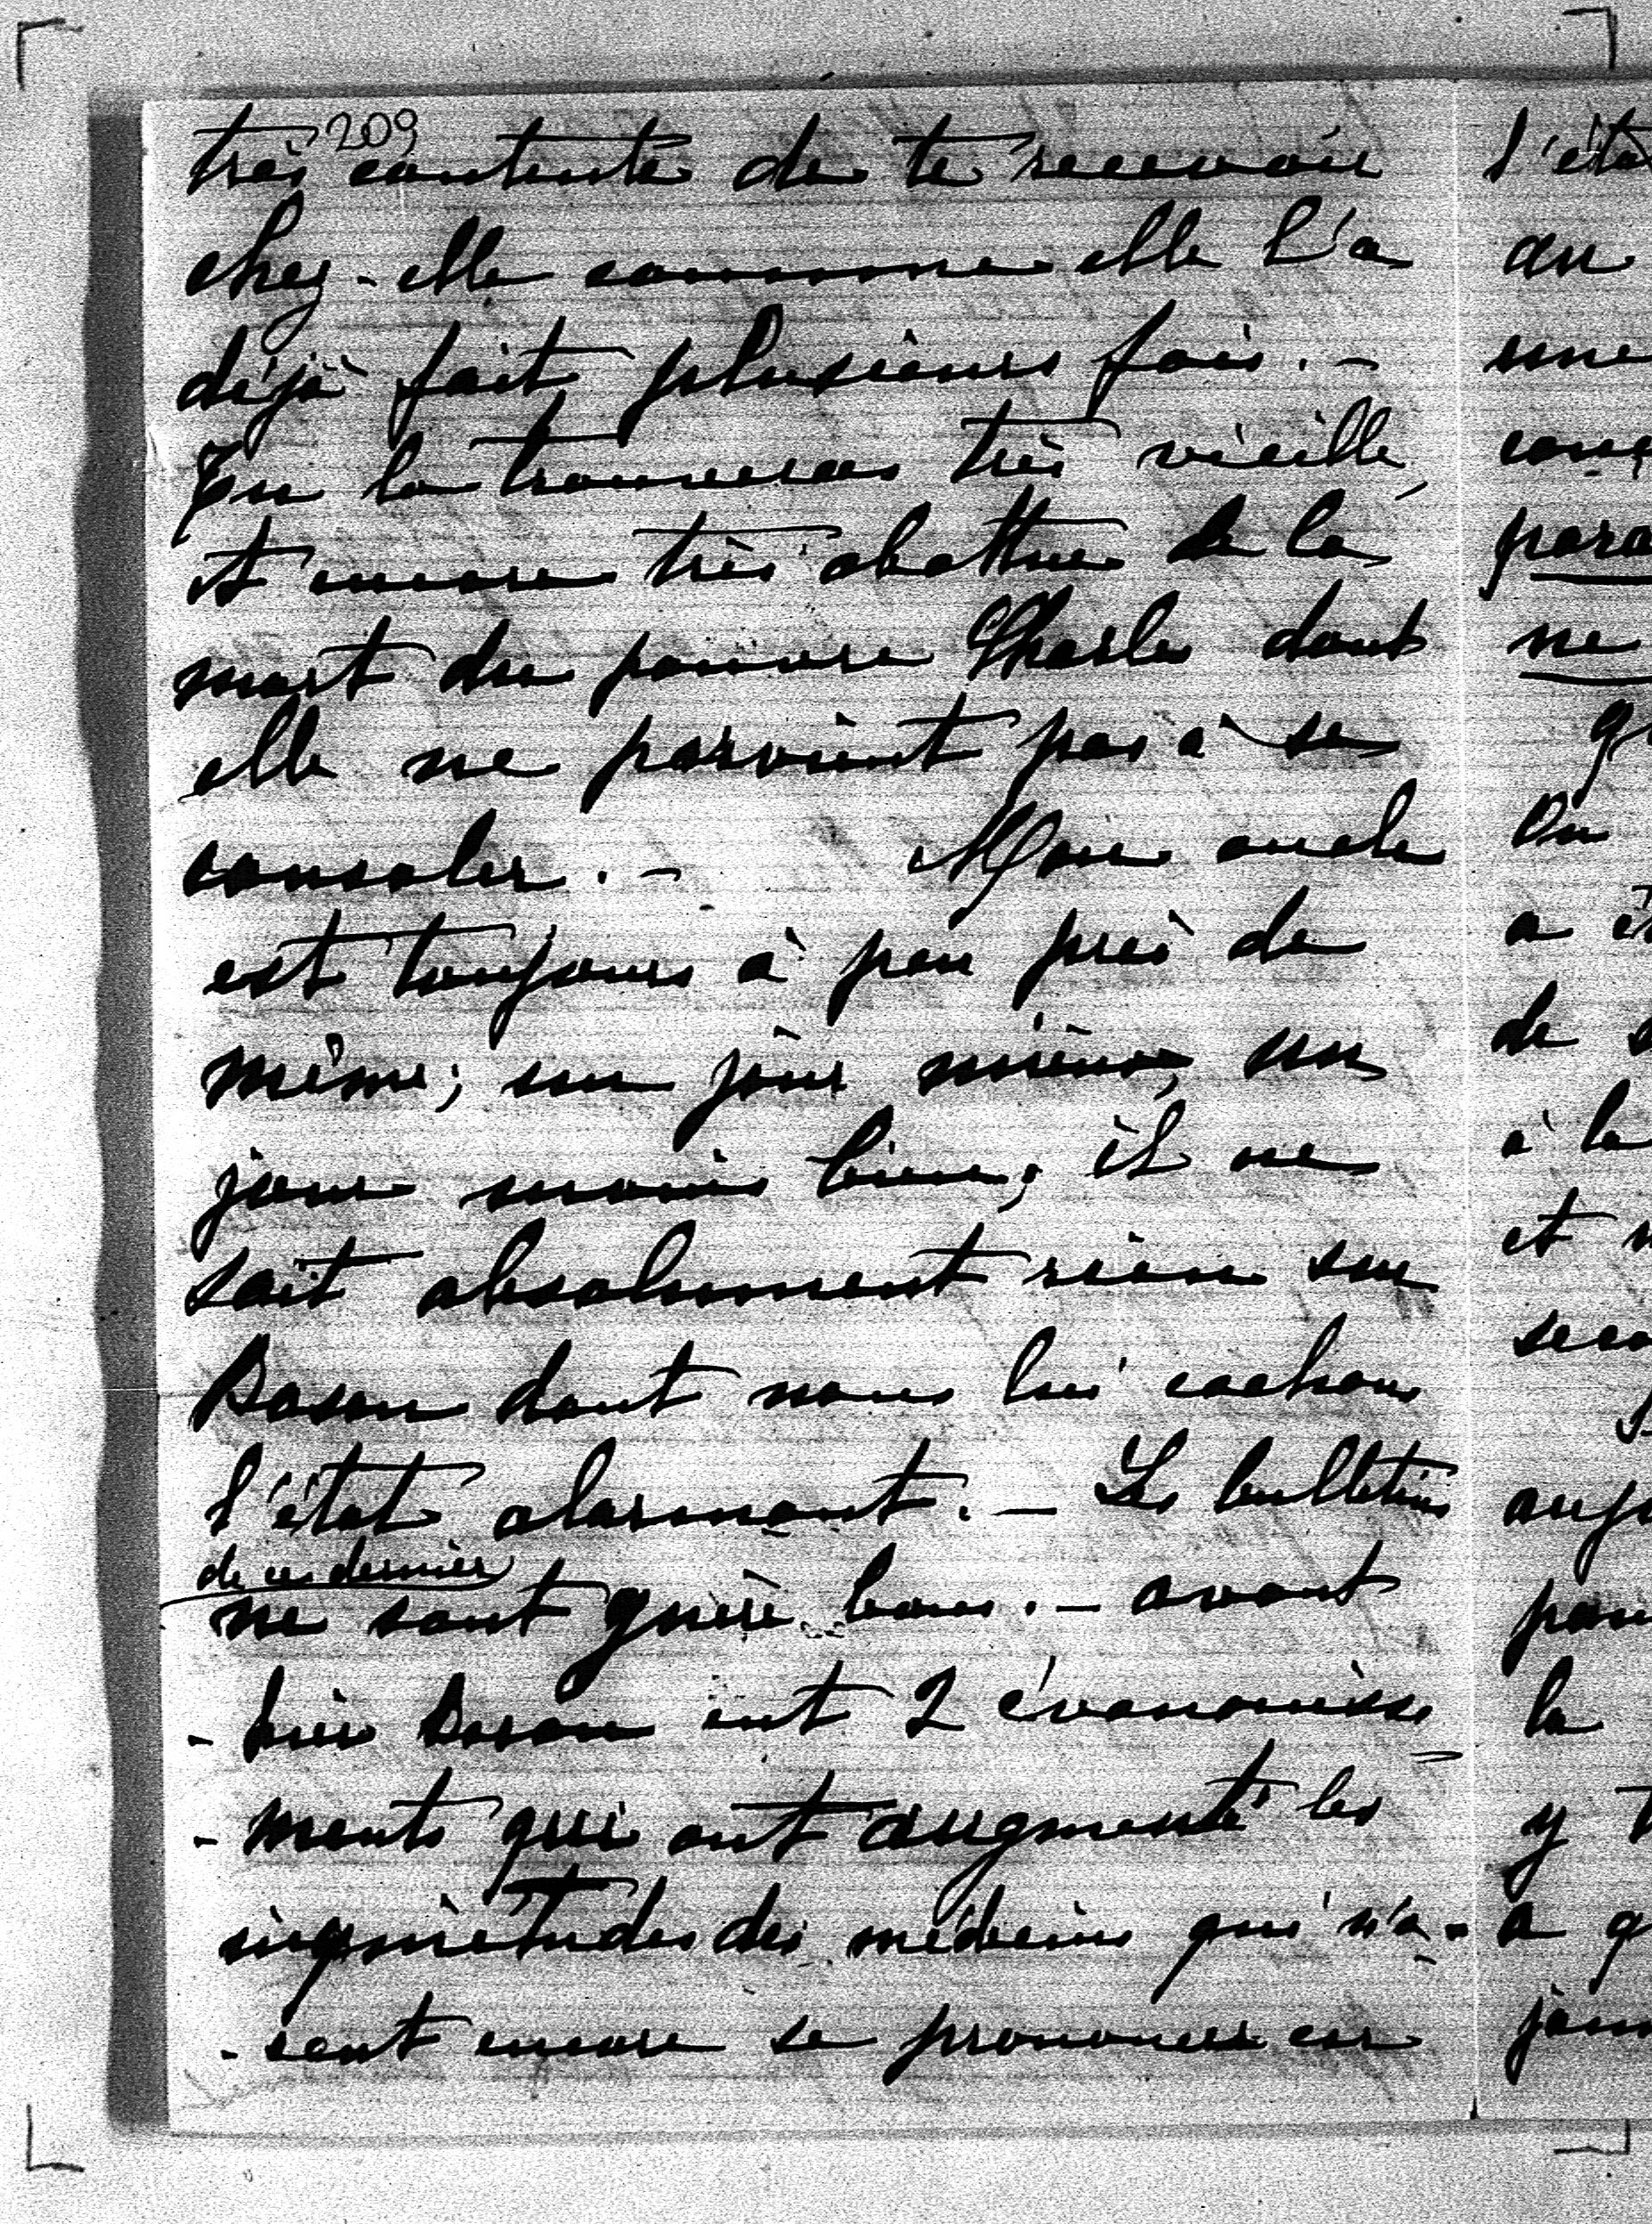 209
très contente de te recevoir
chez-elle comme elle l'a
déjà fait plusieurs fois. -
Tu la trouveras très vieille
et encore très abattue de la
mort du pauvre Charles dont
elle ne parvient pas à se
consoler. - Mon oncle
est toujours à peu près de
même; un jour mieux, un
jour moins bien; il ne
sait absolument rien sur
Boson dont nous lui cachons
l'état alarmant. - Les bulletins
de ce dernier
ne sont guère bons. - avant
- hier Boson eut 2 évanouisse
- ments qui ont augmenté les
inquiétudes des médecins qui n'o-
- sent encore se prononcer car
l'éta
au
une
ne
On
a
de
à la
et
la
y
a q